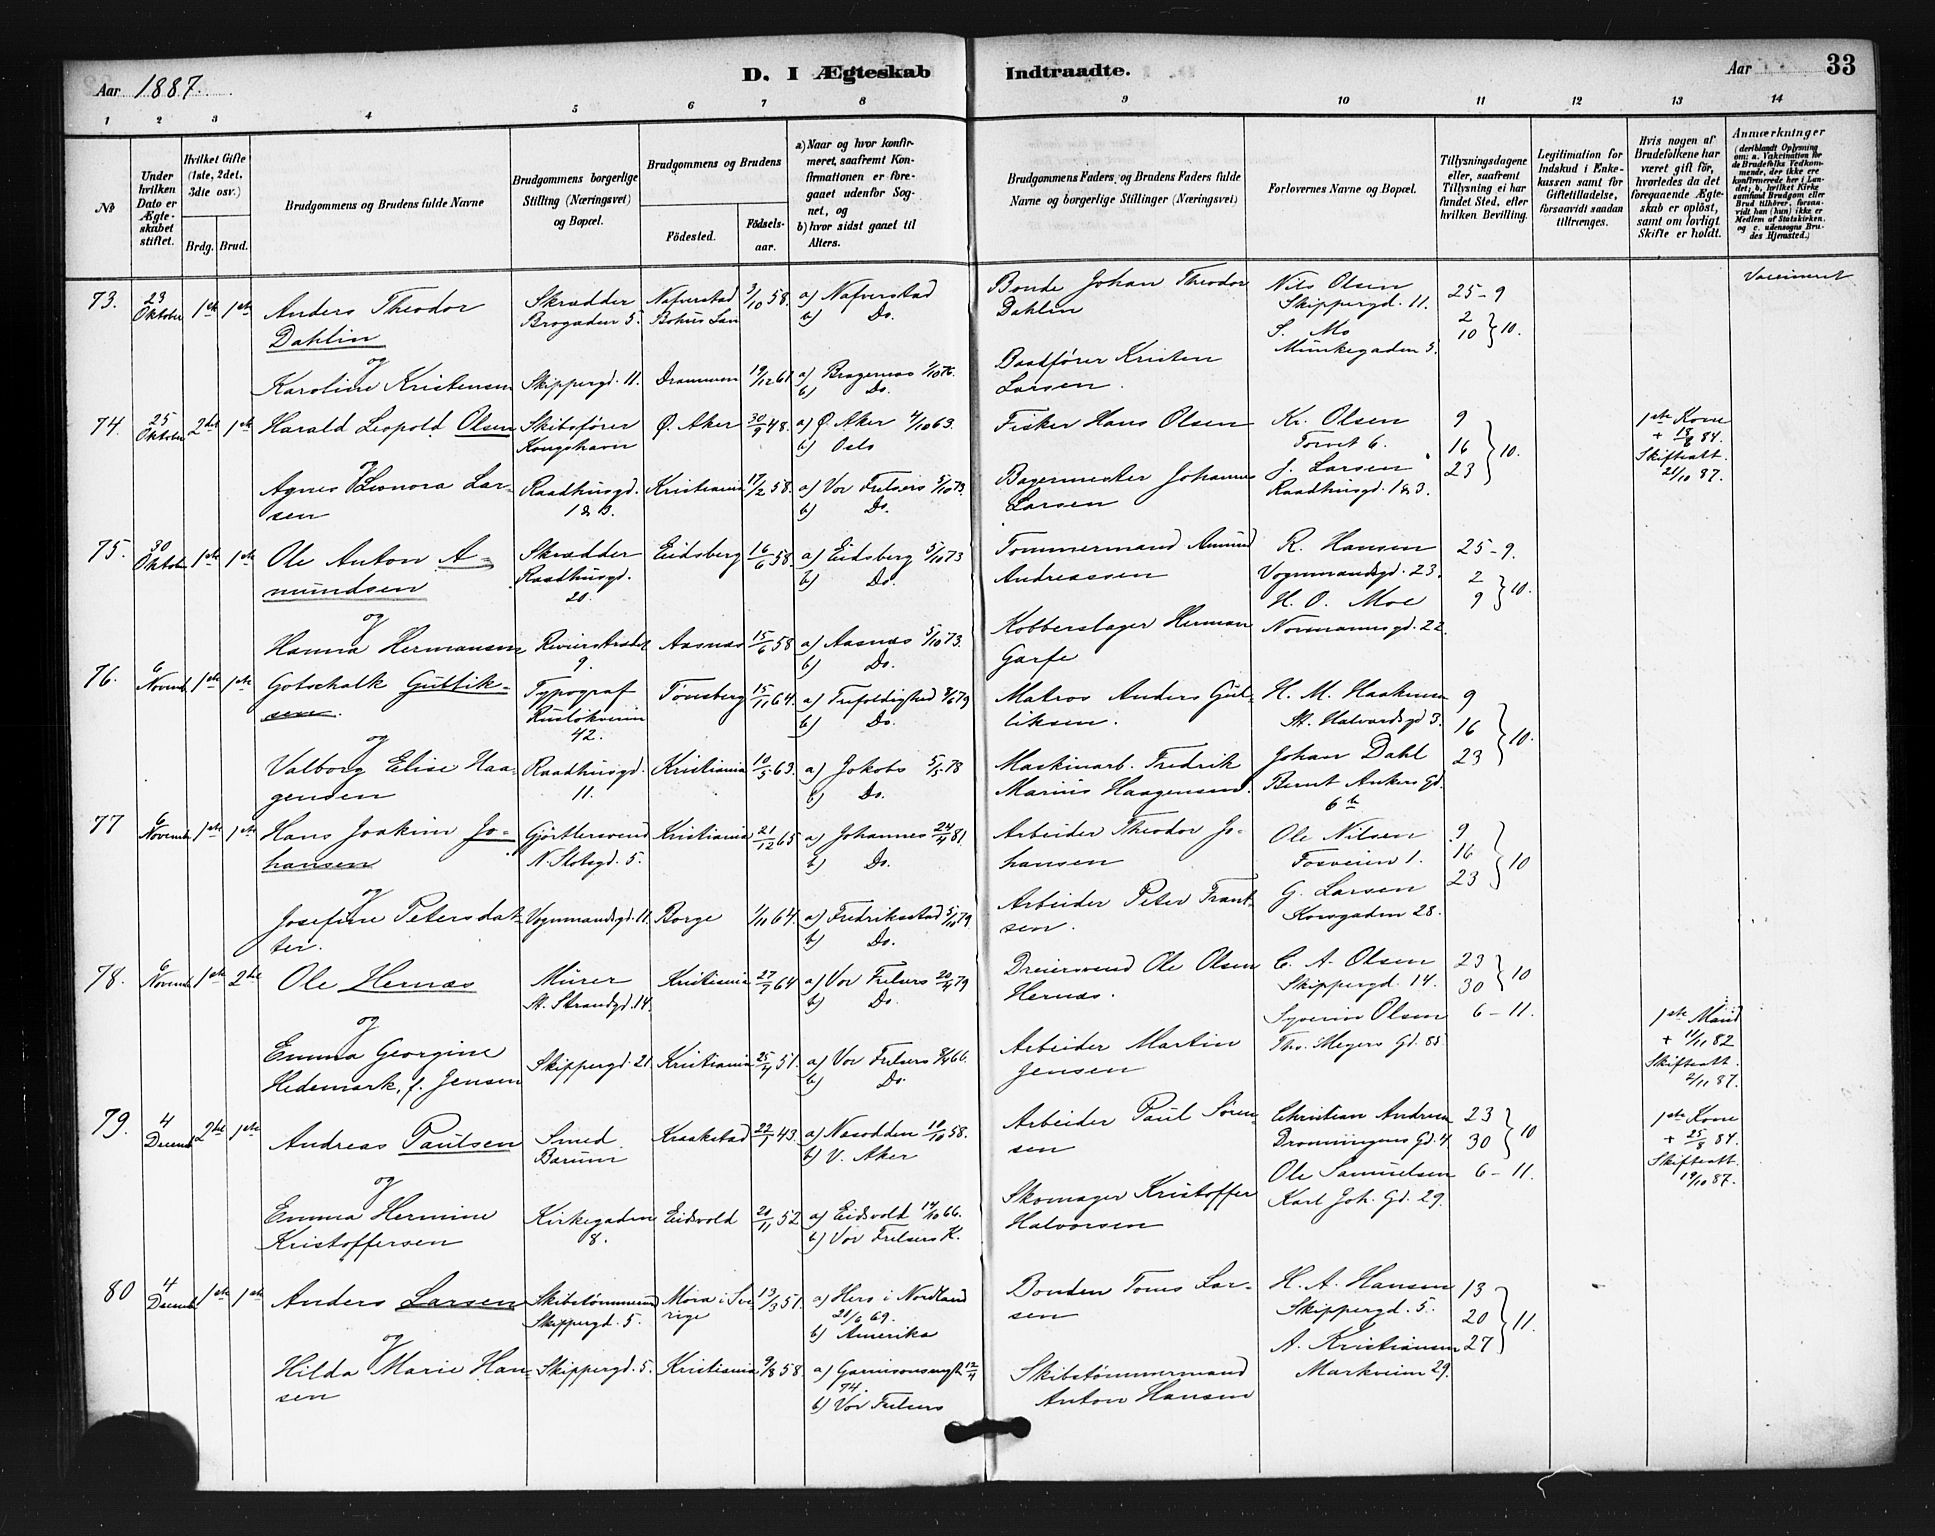 Aar 1887.
D. I Ægteskab Indtraadte.
Aar
33
1 2 3 4 5 6 7 8 9 10 11 12 13 14
№
Under hvilken Dato er Ægteskabet stiftet.
Hvilket Gifte (1ste, 2det, 3die osv.)
Brdg. Brud.
Brudgommens og Brudens fulde Navne
Brudgommens borgerlige Stilling (Næringsvei) og Bopæl.
Brudgommens og Brudens
Fødested.
Fødselsaar.
a) Naar og hvor konfirmeret, saafremt Konfirmationen er foregaaet udenfor Sognet, og
b) hvor sidst gaaet til Alters.
Brudgommens Faders og Brudens Faders fulde Navne og borgerlige Stillinger (Næringsvei)
Forlovernes Navne og Bopæl.
Tillysningsdagene eller, saafremt Tillysning ei har fundet Sted, efter hvilken Bevilling.
Legitimation for Indskud i Enkekassen samt for Giftetilladelse, forsaavidt saadan tiltrænges.
Hvis nogen af Brudefolkene har været gift før, hvorledes da det foregaaende Ægteskab er opløst, samt om lovligt Skifte er holdt.
Anmærkninger
(deriblandt Oplysning om: a. Vakcination for de Brudefolks Vedkommende, der ikke ere konfirmerede her i Landet; b. hvilket Kirkesamfund Brudgom eller Brud tilhører, forsaavidt han (hun) ikke er Medlem af Statskirken, og c. udensogns Brudes Hjemsted.)
73. 23 Oktober 1ste 1ste Anders Theodor Dahlin Skrædder Brogaden 5. Nafverstad Bohus Län 3/10 58. a) Nafverstad b) Do. Bonde Johan Theodor Dahlin Nils Olsen Skippergd. 11. S. Mo Munkegaden 5. 25-9 2 10 } 10. Vaccineret
og
Karoline Kristensen Skippergd. 11. Drammen 19/12 61 a) Bragernæs 1/10 76. b) Do. Baadfører Kristen Larsen.
74. 25 Oktober 2det 1ste Harald Leopold Olsen Skibsfører Kongshavn Ø. Aker 30/9 48. a) Ø. Aker 4/10 63. b) Oslo Fisker Hans Olsen Kr. Olsen Torvet 6. J. Larsen Raadhusgd. 1 & 3. 9 16 23 } 10. 1ste Kone + 18/6 84. Skifteatt. 21/10 87.
og
Agnes Eleonora Larsen Raadhusgd. 1 & 3. Kristiania 17/2 58. a) Vor Frelsers 5/10 73. b) Do. Bagermester Johannes Larsen
75. 30 Oktob. 1ste 1ste Ole Anton Amundsen Skrædder Raadhusgd. 20. Eidsberg 16/6 58. a) Eidsberg 5/10 73 b) Do. Tømmermand Amund Andreassen R. Hansen Vognmandsgd. 23. H. O. Moe Normannsgd. 22. 25-9. 2 9 } 10.
og
Hanna Hermansen Revierstrædet 9. Aasnæs 15/6 58 a) Aasnæs 5/10 73. b) Do. Kobberslager Herman Garfe
76. 6 Novemb. 1ste 1ste Gotschalk Gulliksen. Typograf Ruseløkveien 42. Tønsberg 15/11 64. a) Trefoldighed 8/6 79 b) Do. Matros Anders Gulliksen. H. M. Haakensen St. Halvardsgd 3. Johan Dahl Bernt Ankers Gd. 6 b 9 16 23 } 10.
og
Valborg Elise Haagensen Raadhusgd. 11. Kristiania 10/5 63. a) Jakobs 5/5 78 b) Do. Maskinarb. Fredrik Marius Haagensen.
77 6 Novemb. 1ste 1ste Hans Joakim Johansen Gjørtlersvend N. Slotsgd. 5. Kristiania 21/12 65 a) Johannes 24/4 81. b) Do. Arbeider Theodor Johansen Ole Nilsen Fosveien 1. G. Larsen Korsgaden 28. 9 16 23 } 10
og
Josefine Petersdatter. Vognmandsgd. 11. Borge 1/11 64. a) Fredriksstad 5/10 79. b) Do. Arbeider Peter Frantsen.
78. 6 Novemb. 1ste 2det Ole Hernæs Murer St. Strandgd. 14. Kristiania 27/7 64 a) Vor Frelsers 20/4 79 b) Do. Dreiersvend Ole Olsen Hernæs. C. A. Olsen Skippergd. 14. Syverin Olsen Thv. Meyers Gd. 85. 23 30 } 10 6-11.
og
Emma Georgine Hedemark, f. Jensen Skippergd. 21. Kristiania 25/4 51. a) Vor Frelsers 8/4 66. b) Do. Arbeider Martin Jensen 1ste Mand + 11/11 82 Skifteatt. 2/11 87.
79. 4 Decemb. 2det 1ste Andreas Paulsen Smed Bærum Kraakstad 22/1 43. a) Næsodden 10/10 58. b) V. Aker Arbeider Paul Sørensen Christian Andresen Dronningens Gd. 4. Ole Samuelsen Karl Joh. Gd. 29. 23 30 } 10 6-11. 1ste Kone + 25/8 84. Skifteatt. 19/10 87.
og
Emma Hermine Kristoffersen Kirkegaden 8. Eidsvold 20/11 52 a) Eidsvold 14/10 66. b) Vor Frelsers K. Skomager Kristoffer Halvorsen
80 4 Decemb. 1ste 1ste Anders Larsen Skibstømmermd Skippergd. 5. Mora i Sverige 13/3 51. a) Herø i Nordland 21/6 69. b) Amerika Bonden Toms Larsen H. A. Hansen Skippergd. 5. A. Kristiansen Markveien 29. 13 20 27 } 11.
og
Hilda Marie Hansen Skippergd. 5. Kristiania 9/8 58. a) Garnisonsmgh. 12/4 74. b) Vor Frelsers Skibstømmermand Anton Hansen